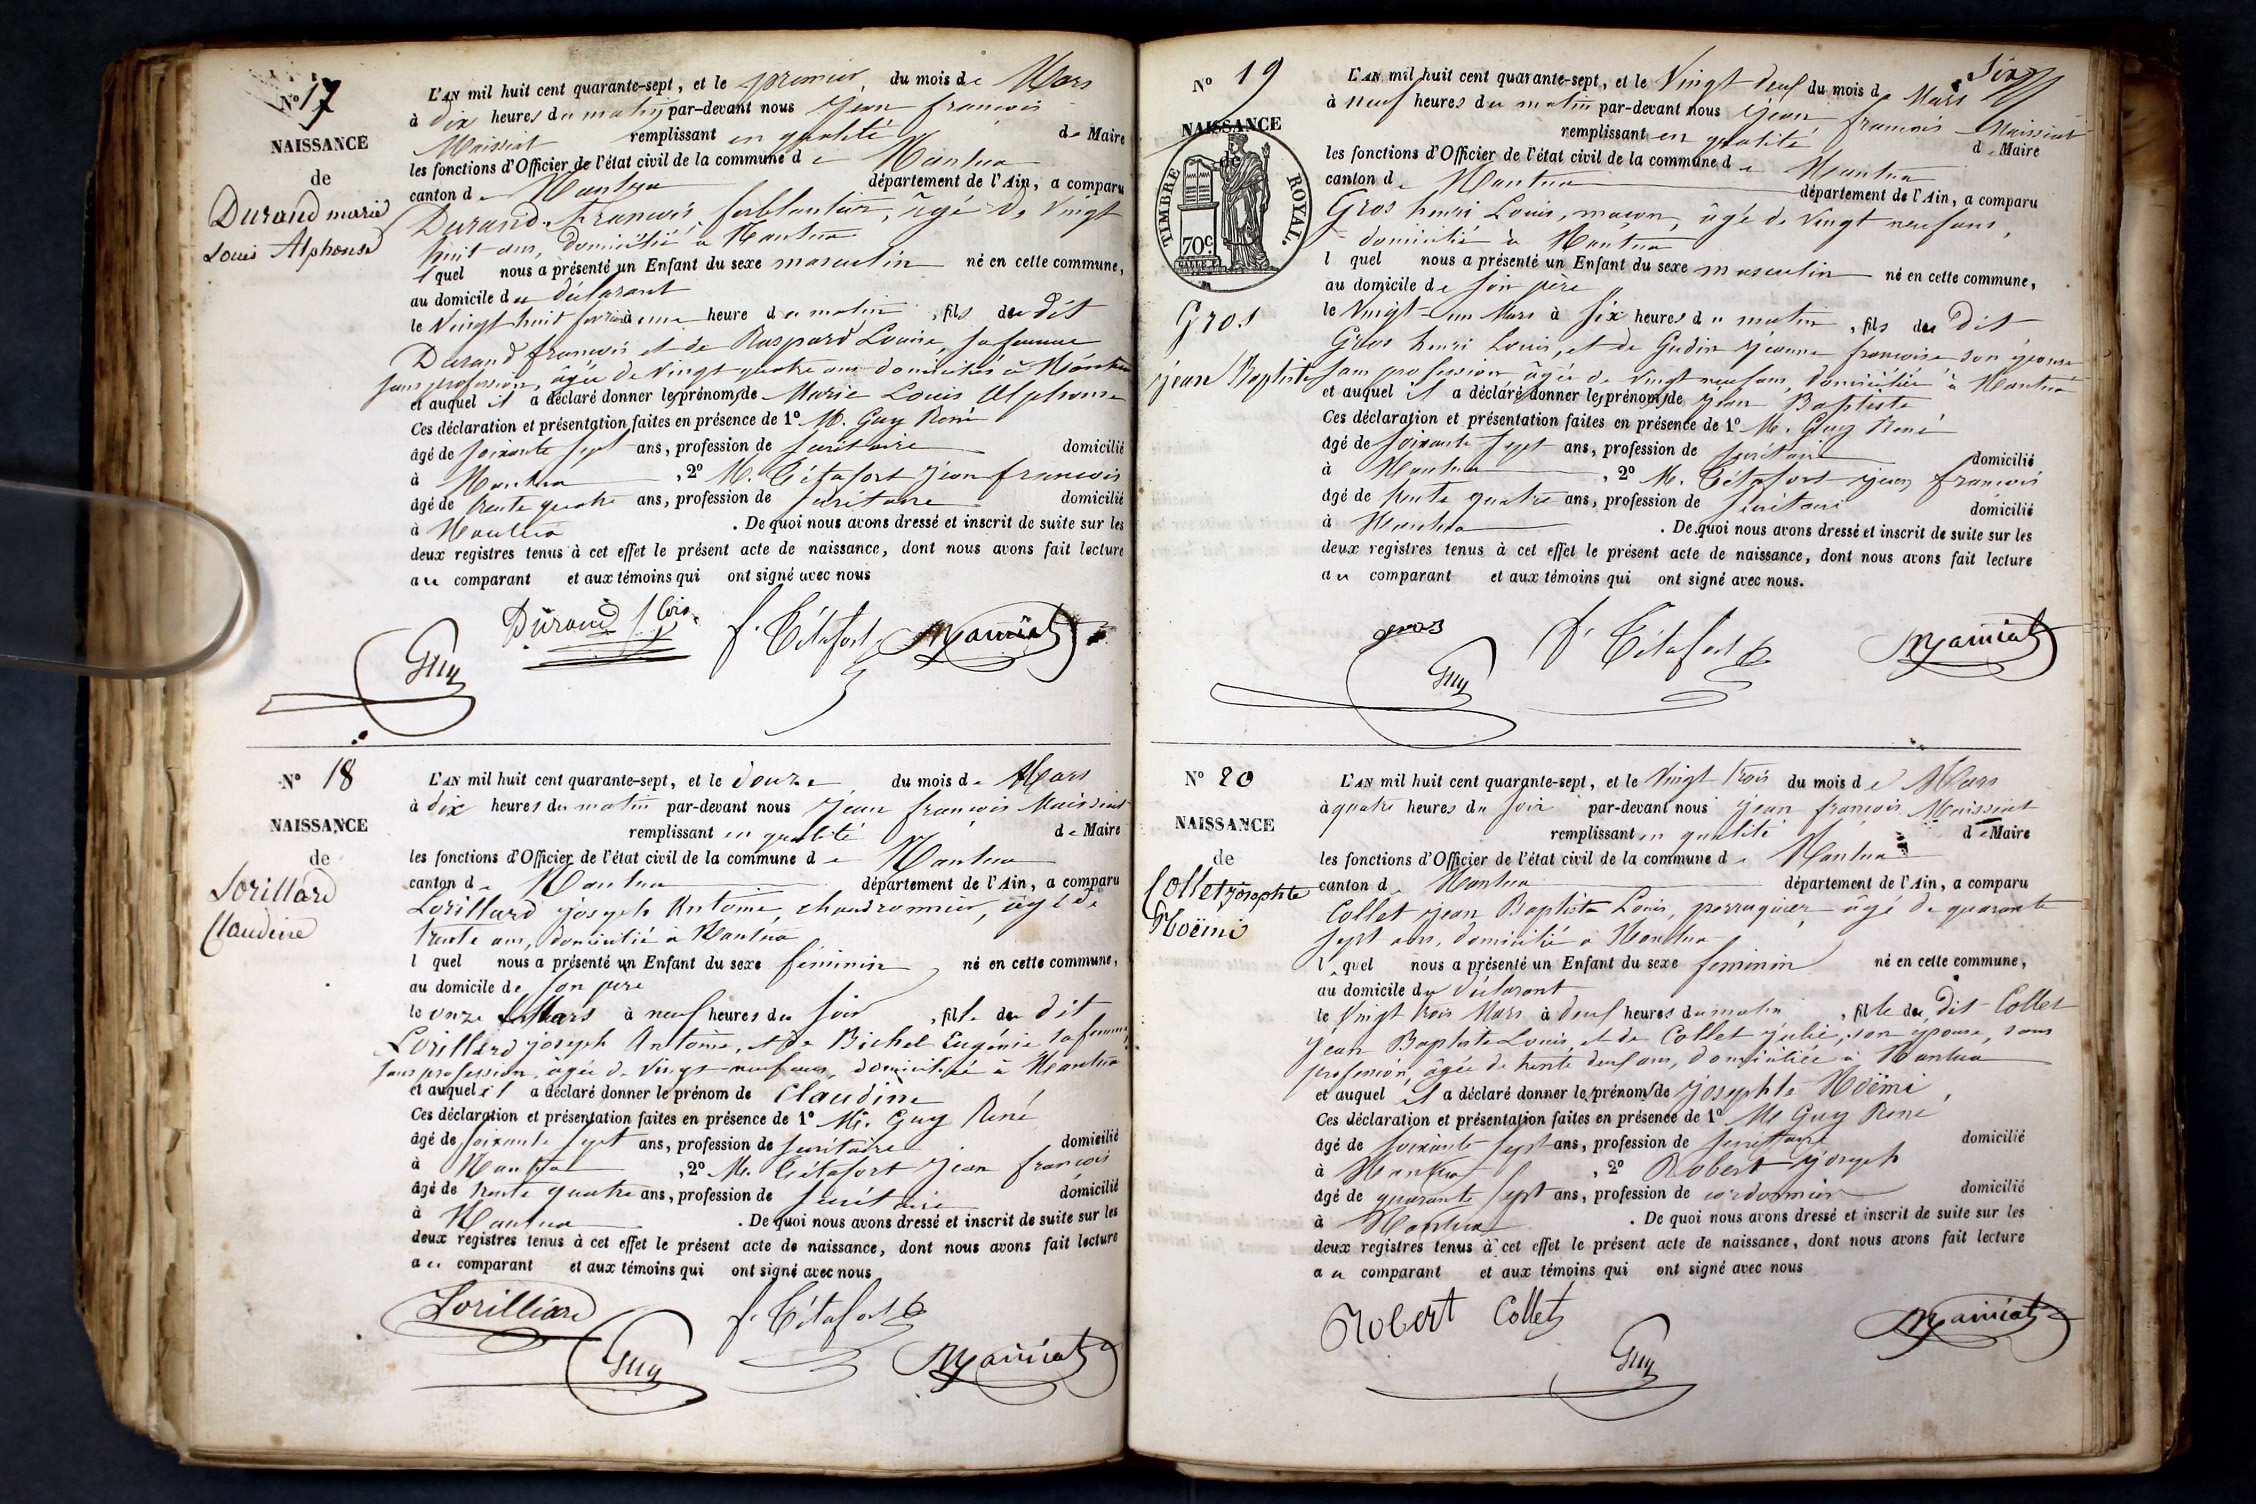 N° 17
NAISSANCE
de
Durand marie
Louis Alphonse
L'AN mil huit cent quarante-sept, et le premier du mois de Mars
à dix heures du matin par-devant nous Jean françois
Maissiat remplissant en qualité de Maire
les fonctions d'Officier de l'état civil de la commune de Nantua
canton de Nantua département de l'Ain, a comparu
Durand François, ferblantier, âgé de vingt
huit ans, domicilié à Nantua
lequel nous a présenté un Enfant du sexe masculin né en cette commune,
au domicile du déclarant
le vingt huit février à une heure du matin, fils du dit
Durand françois et de Raspard Louise, sa femme
sans profession, âgée de vingt quatre ans domiciliés à Nantua
et auquel il a déclaré donner les prénoms de Marie Louis Alphonse
Ces déclaration et présentation faites en présence de 1° M. Guy René
âgé de soixante sept ans, profession de secrétaire domicilié
à Nantua, 2° M. Tétafort Jean françois
âgé de trente quatre ans, profession de secrétaire domicilié
à Nantua. De quoi nous avons dressé et inscrit de suite sur les
deux registres tenus à cet effet le présent acte de naissance, dont nous avons fait lecture
au comparant et aux témoins qui ont signé avec nous
Durand fçois f. Tétafort Maissiat
Guy
N° 18
NAISSANCE
de
Lorillard
Claudine
L'AN mil huit cent quarante-sept, et le douze du mois de Mars
à dix heures du matin par-devant nous Jean françois Maissiat
remplissant en qualité de Maire
les fonctions d'Officier de l'état civil de la commune de Nantua
canton de Nantua département de l'Ain, a comparu
Lorillard Joseph Antoine, chaudronnier, âgé de
trente ans, domicilié à Nantua
lequel nous a présenté un Enfant du sexe féminin né en cette commune,
au domicile de son père
le onze Mars à neuf heures du soir, fille du dit
Lorillard Joseph Antoine, et de Bichet Eugénie sa femme
sans profession, âgée de vingt neuf ans, domiciliée à Nantua
et auquel il a déclaré donner le prénom de Claudine
Ces déclaration et présentation faites en présence de 1° M. Guy René
âgé de soixante sept ans, profession de secrétaire domicilié
à Nantua, 2° M. Tétafort Jean françois
âgé de trente quatre ans, profession de secrétaire domicilié
à Nantua. De quoi nous avons dressé et inscrit de suite sur les
deux registres tenus à cet effet le présent acte de naissance, dont nous avons fait lecture
au comparant et aux témoins qui ont signé avec nous
Lorilliard f. Tétafort
Guy Maissiat
Six
N° 19
NAISSANCE
de
TIMBRE ROYAL.
70c
Gros
Jean Baptiste
L'AN mil huit cent quarante-sept, et le vingt deux du mois de Mars
à neuf heures du matin par-devant nous Jean françois Maissiat
remplissant en qualité de Maire
les fonctions d'Officier de l'état civil de la commune de Nantua
canton de Nantua département de l'Ain, a comparu
Gros henri Louis, maçon, âgé de vingt neuf ans,
domicilié à Nantua
lequel nous a présenté un Enfant du sexe masculin né en cette commune,
au domicile de son père
le vingt-un Mars à six heures du matin, fils du dit
Gros henri Louis, et de Gudin Jeanne françoise son épouse
sans profession âgée de vingt neuf ans, domiciliée à Nantua
et auquel il a déclaré donner les prénoms de Jean Baptiste
Ces déclaration et présentation faites en présence de 1° M. Guy René
âgé de soixante sept ans, profession de secrétaire domicilié
à Nantua, 2° M. Tétafort Jean françois
âgé de trente quatre ans, profession de secrétaire domicilié
à Nantua. De quoi nous avons dressé et inscrit de suite sur les
deux registres tenus à cet effet le présent acte de naissance, dont nous avons fait lecture
au comparant et aux témoins qui ont signé avec nous.
gros f. Tétafort Maissiat
Guy
N° 20
NAISSANCE
de
Collet Josephte
Noëmi
L'AN mil huit cent quarante-sept, et le vingt trois du mois de Mars
à quatre heures du soir par-devant nous Jean françois Maissiat
remplissant en qualité de Maire
les fonctions d'Officier de l'état civil de la commune de Nantua
canton de Nantua département de l'Ain, a comparu
Collet Jean Baptiste Louis, perruquier âgé de quarante
sept ans, domicilié à Nantua
lequel nous a présenté un Enfant du sexe féminin né en cette commune,
au domicile du déclarant
le vingt trois Mars à deux heures du matin, fille du dit Collet
Jean Baptiste Louis, et de Collet Julie, son épouse, sans
profession, âgée de trente deux ans, domiciliée à Nantua
et auquel il a déclaré donner les prénoms de Josephte Noëmi
Ces déclaration et présentation faites en présence de 1° M. Guy René
âgé de soixante sept ans, profession de secrétaire domicilié
à Nantua, 2° Robert Joseph
âgé de quarante sept ans, profession de cordonnier domicilié
à Nantua. De quoi nous avons dressé et inscrit de suite sur les
deux registres tenus à cet effet le présent acte de naissance, dont nous avons fait lecture
au comparant et aux témoins qui ont signé avec nous
Robert Collet Maissiat
Guy